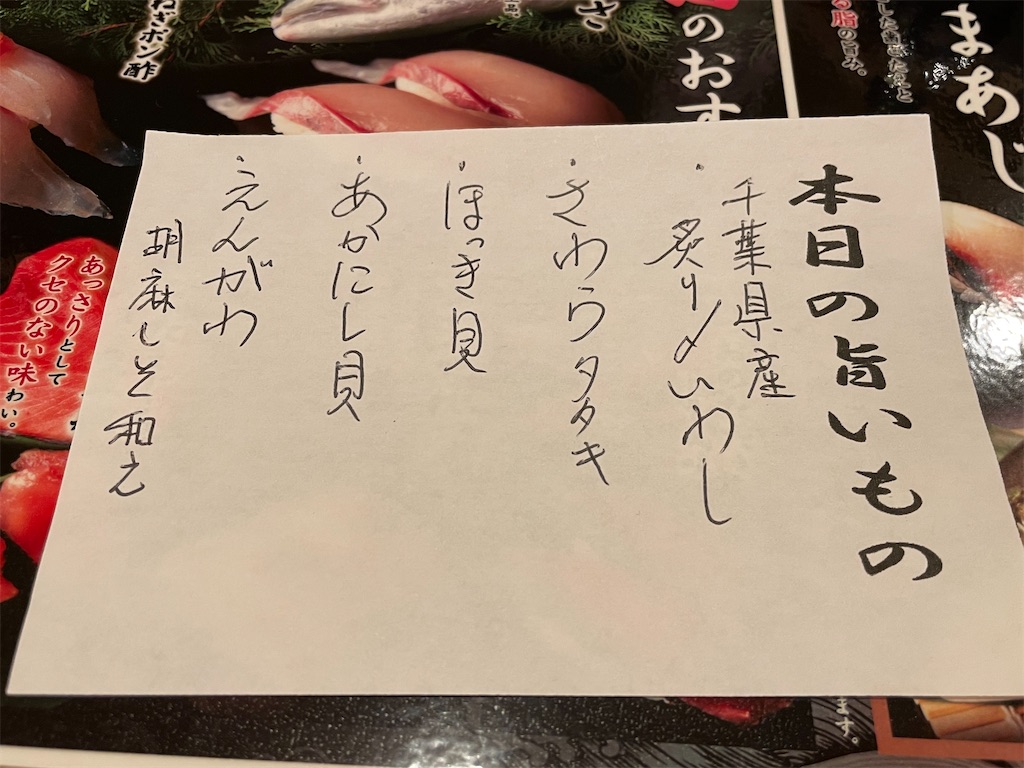 本日の旨いもの
千葉県産
・炙り〆いわし
・さわらタタキ
・ほっき貝
・あかにし貝
・えんがわ
胡麻しそ和え
まあじ
る脂の旨み。
のおす
さ
ねぎポン酢
あっさりとして
クセのない味わい。
ます。